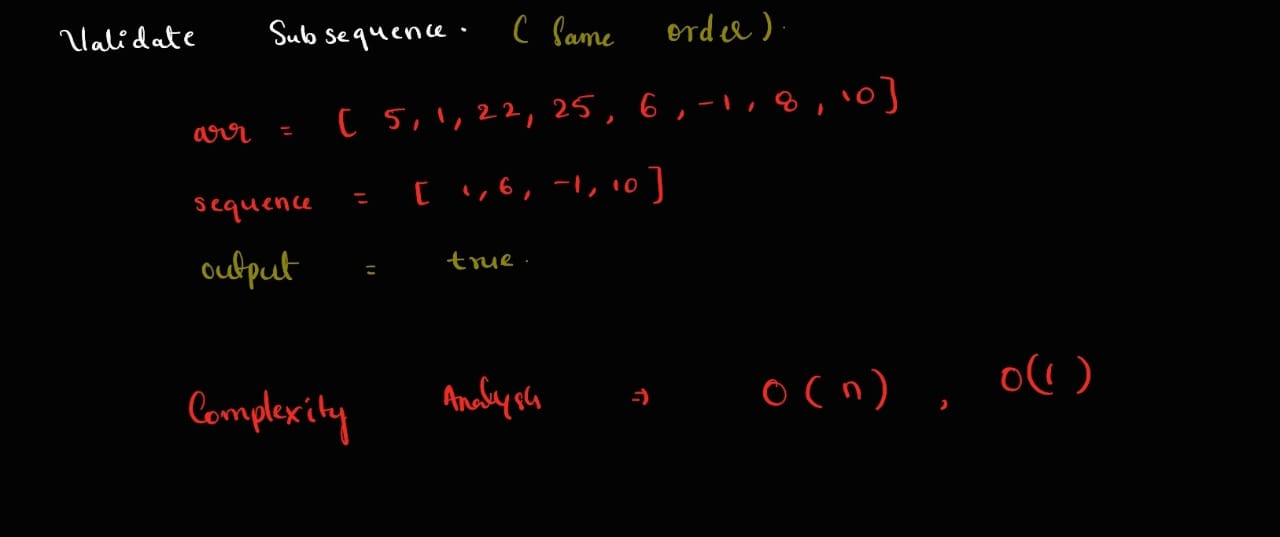 Validate Subsequence. (Same order).
arr = [ 5, 1, 22, 25, 6, -1, 8, 10]
sequence = [ 1, 6, -1, 10 ]
output = true.
Complexity Analysis ⇒ O(n), O(1)